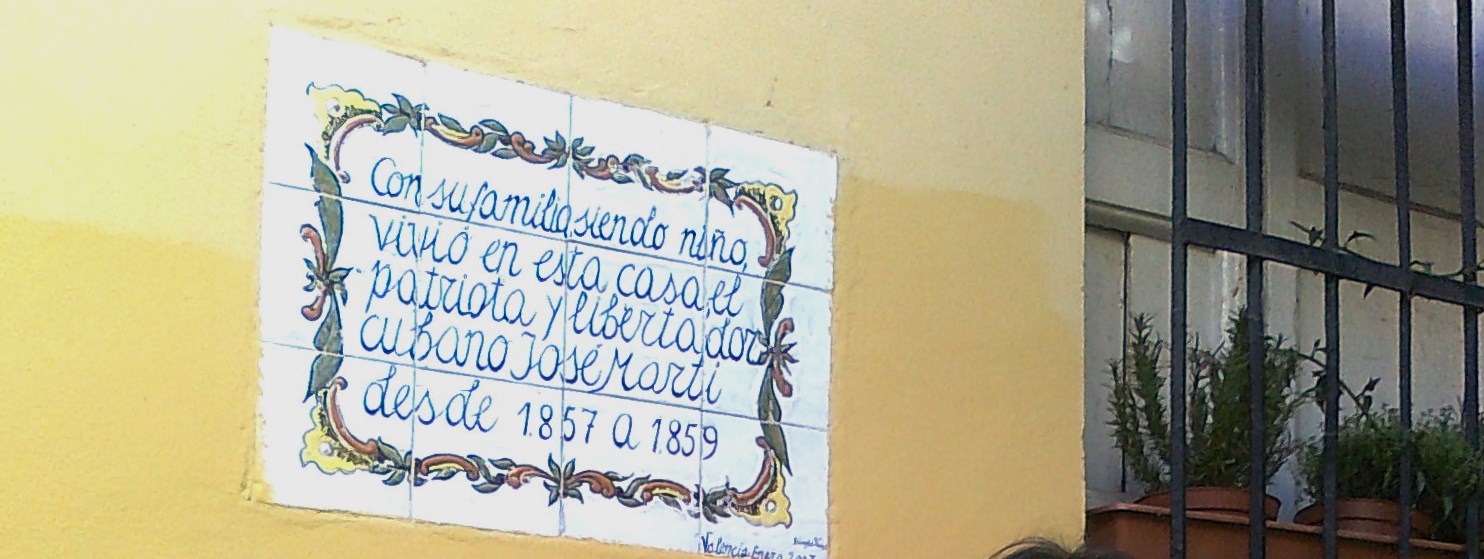 Con su familia, siendo niño,
vivió en esta casa, el
patriota y libertador
cubano José Martí
desde 1.857 a 1.859
Valencia Enero